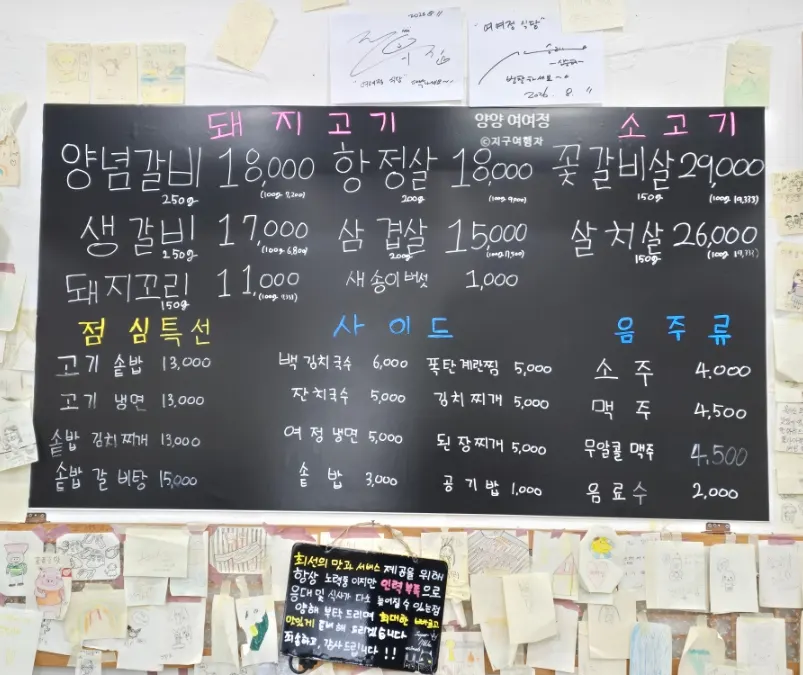 2026 8 11
여여정 식당
2026. 8. 11
양양 여여정
©지구여행자
돼지고기
소고기
양념갈비 250g 18,000 (100g 7,200)
항정살 200g 18,000 (100g 9,000)
꽃갈비살 150g 29,000 (100g 19,333)
생갈비 250g 17,000 (100g 6,800)
삼겹살 200g 15,000 (100g 7,500)
살치살 150g 26,000
돼지꼬리 150g 11,000
새송이버섯 1,000
점심특선
사이드
음주류
고기 솥밥 13,000
백김치국수 6,000
폭탄계란찜 5,000
소주 4.000
고기 냉면 13,000
잔치국수 5,000
김치찌개 5,000
맥주 4,500
솥밥 김치찌개 13,000
여정냉면 5,000
된장찌개 5,000
무알콜맥주 4.500
솥밥 갈비탕 15,000
솥밥 3,000
공기밥 1,000
음료수 2,000
최선의 맛과 서비스 제공을 위해
항상 노력중 이지만 인력부족으로
응대 및 식사가 다소 늘어질 수 있는점
양해 부탁 드리며 최대한 빠르고
맛있게 준비해 드리겠습니다
죄송하고, 감사드립니다!!